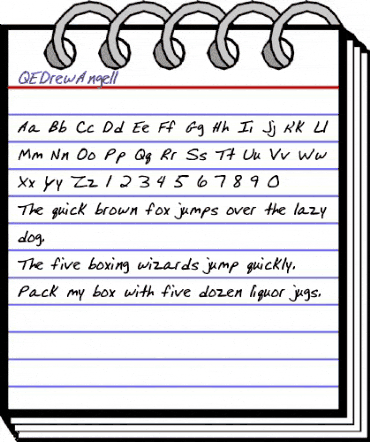 QEDrewAngell
Aa Bb Cc Dd Ee Ff Gg Hh Ii Jj Kk Ll
Mm Nn Oo Pp Qq Rr Ss Tt Uu Vv Ww
Xx Yy Zz 1 2 3 4 5 6 7 8 9 0
The quick brown fox jumps over the lazy
dog.
The five boxing wizards jump quickly.
Pack my box with five dozen liquor jugs.